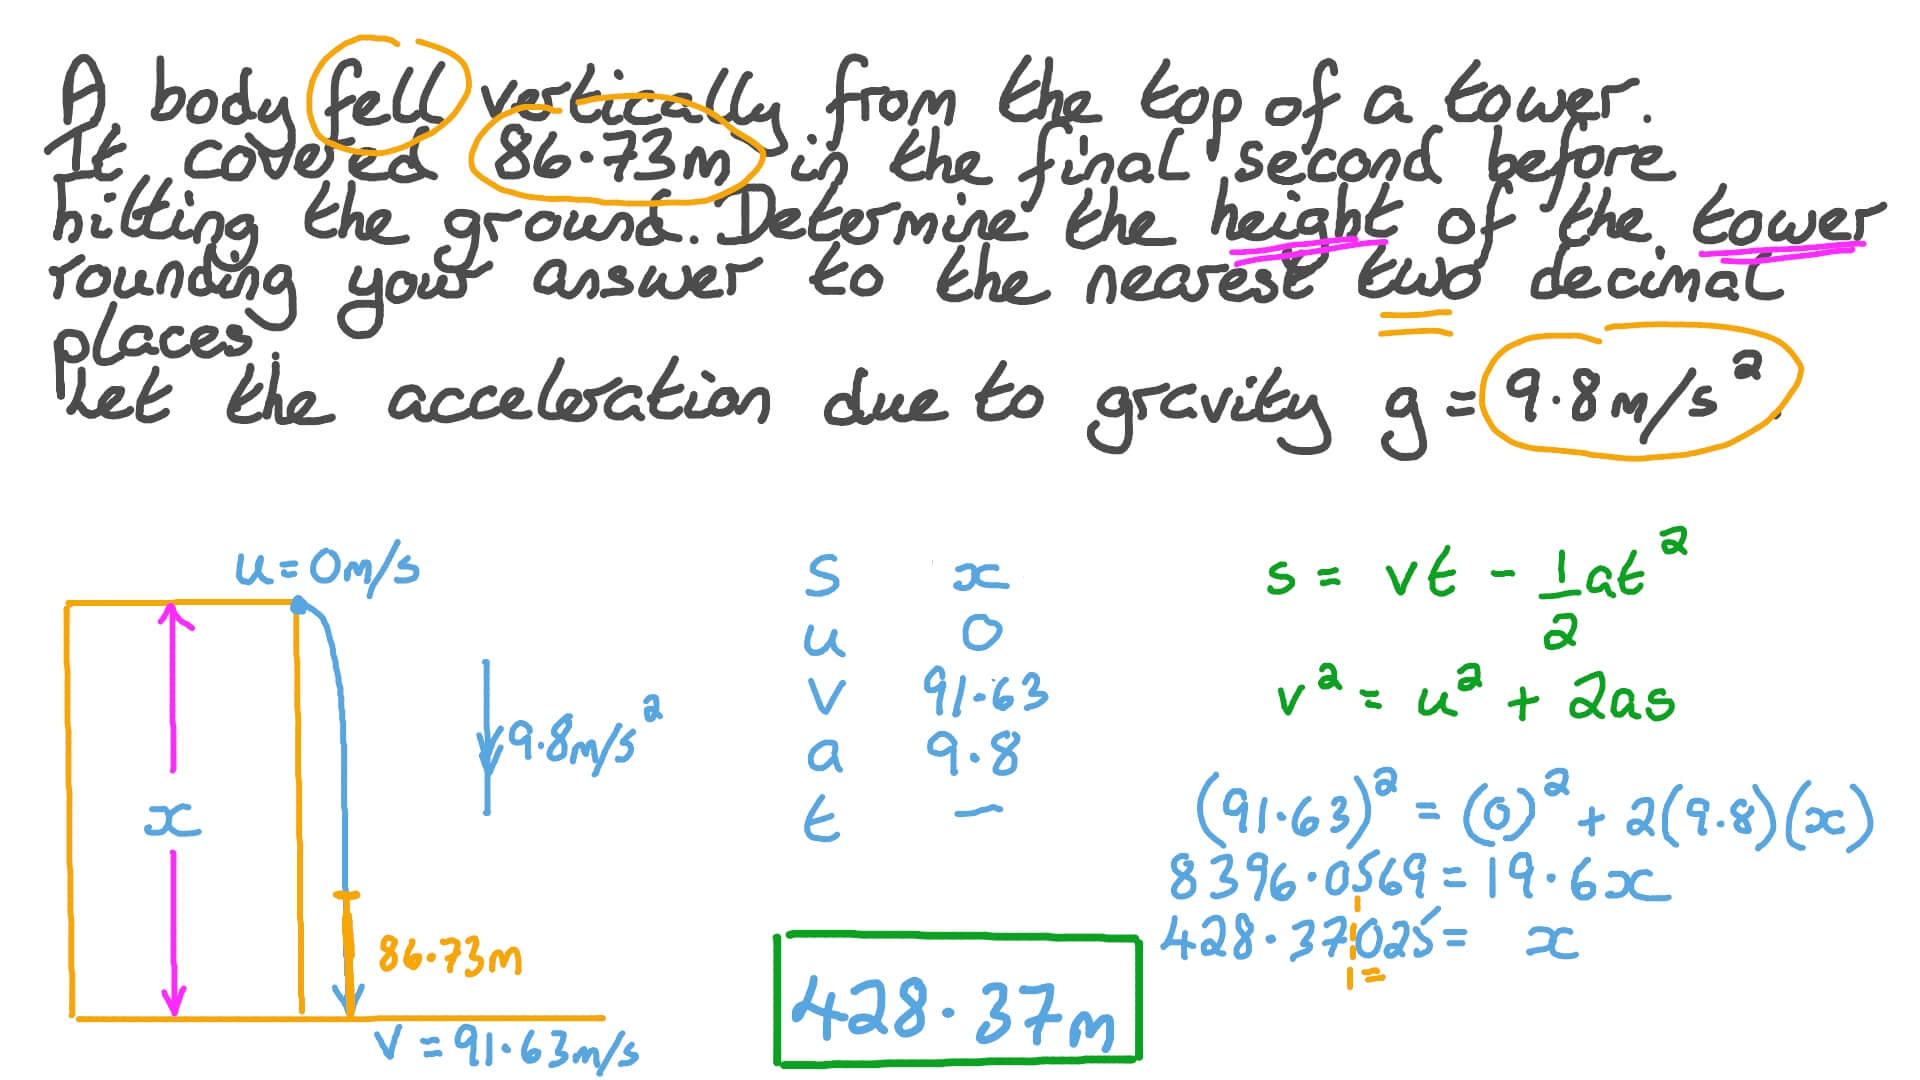 A body fell vertically from the top of a tower.
It covered 86.73m in the final second before
hitting the ground. Determine the height of the tower
rounding your answer to the nearest two decimal
places.
Let the acceleration due to gravity g = 9.8m/s².
u = 0m/s
x
9.8m/s²
86.73m
v = 91.63m/s
s x
u 0
v 91.63
a 9.8
t —
428.37m
s = vt - 1/2 at²
v² = u² + 2as
(91.63)² = (0)² + 2(9.8)(x)
8396.0569 = 19.6x
428.37025 = x